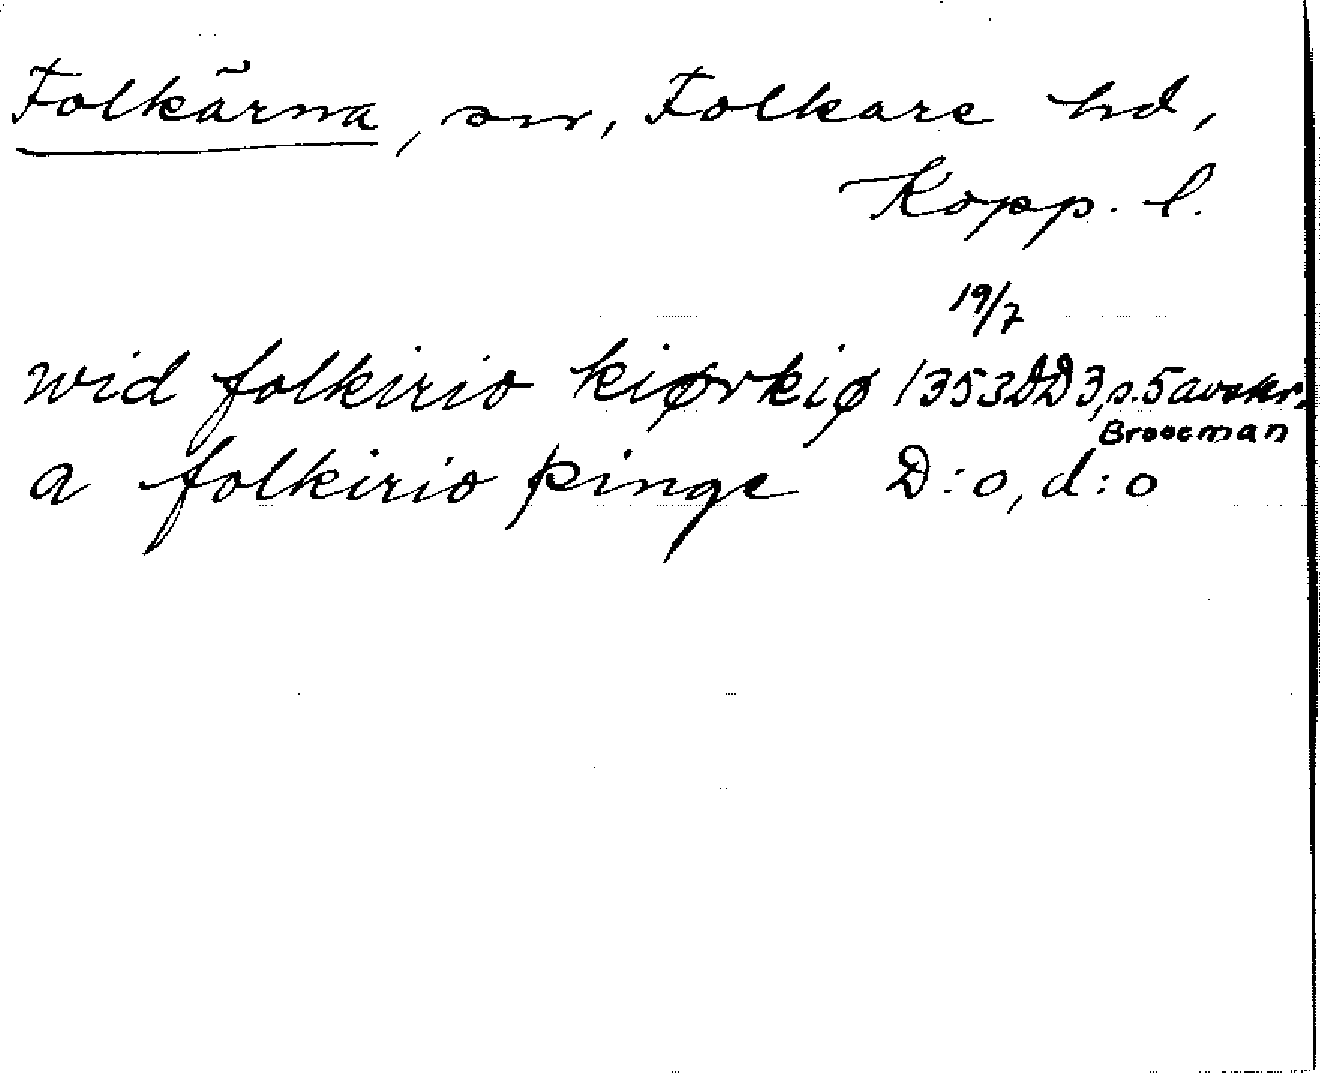 Folkärna, sn, Folkare hd,
Kopp. l.
19/7
wid folkirio kiørkiø 1353 DD3, p. 5 avskr.
Brooeman
a folkirio þinge D:o, d:o